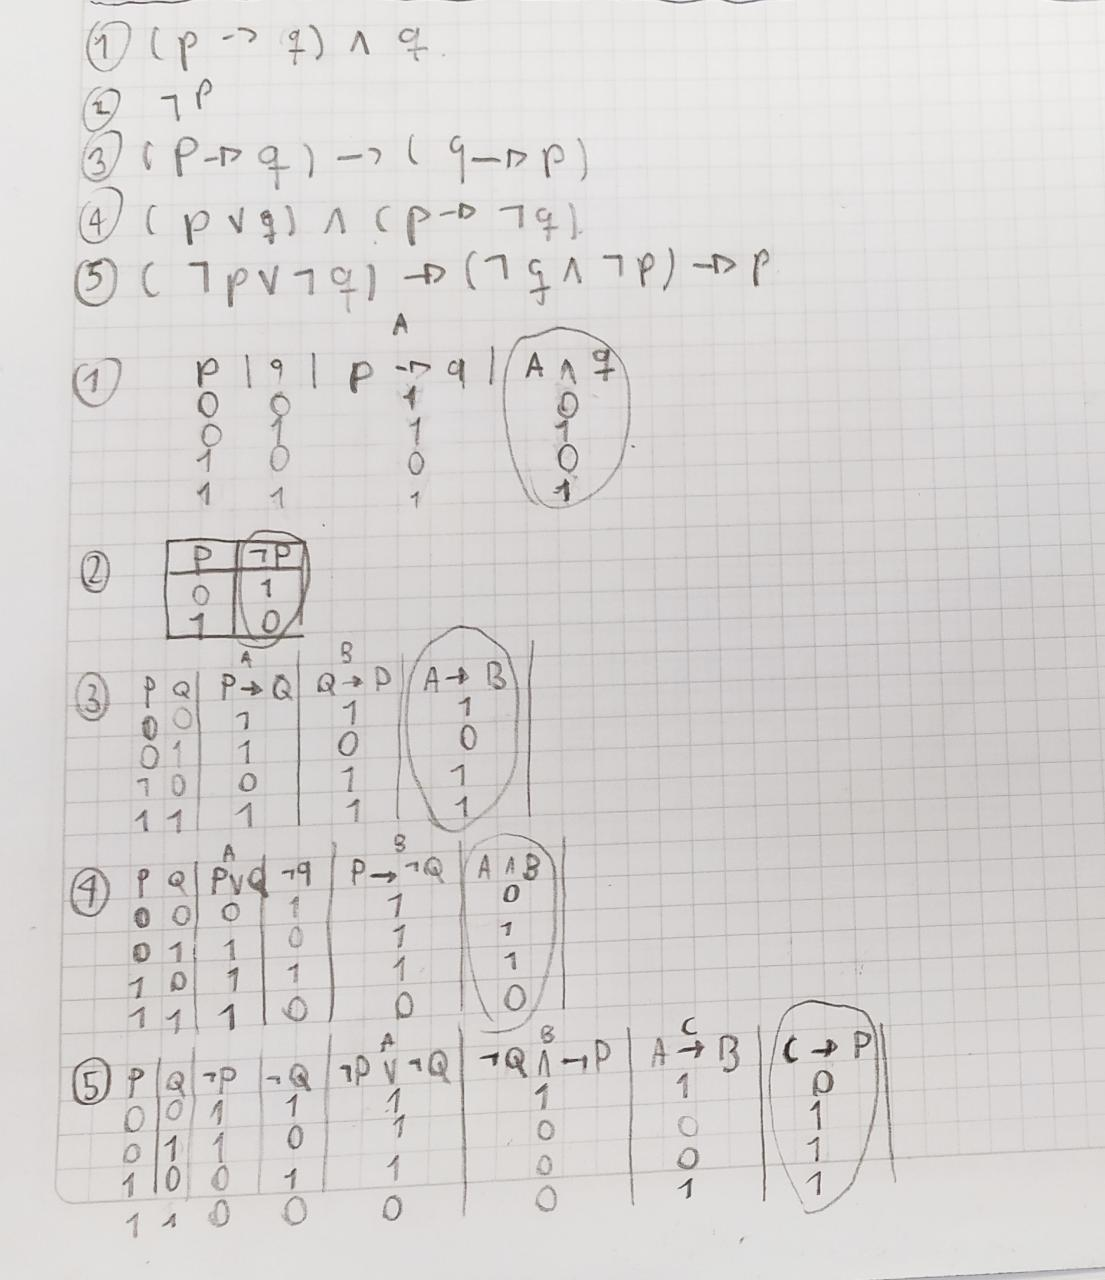 ① (p -> q) ∧ q.
② ¬p
③ (p → q) → (q → p)
④ (p ∨ q) ∧ (p → ¬q)
⑤ (¬p ∨ ¬q) → (¬q ∧ ¬p) → p
A
① p | q | p → q | A ∧ q
0 0 1 0
0 1 1 1
1 0 0 0
1 1 1 1
② P ¬P
0 1
1 0
A B
③ P Q P → Q Q → P A → B
0 0 1 1 1
0 1 1 0 0
1 0 0 1 1
1 1 1 1 1
A B
④ P Q P∨Q ¬q P → ¬Q A ∧ B
0 0 0 1 1 0
0 1 1 0 1 1
1 0 1 1 1 1
1 1 1 0 0 0
A B C
⑤ P Q ¬P ¬Q ¬P ∨ ¬Q ¬Q ∧ ¬P A → B C → P
0 0 1 1 1 1 1 0
0 1 1 0 1 0 0 1
1 0 0 1 1 0 0 1
1 1 0 0 0 0 1 1